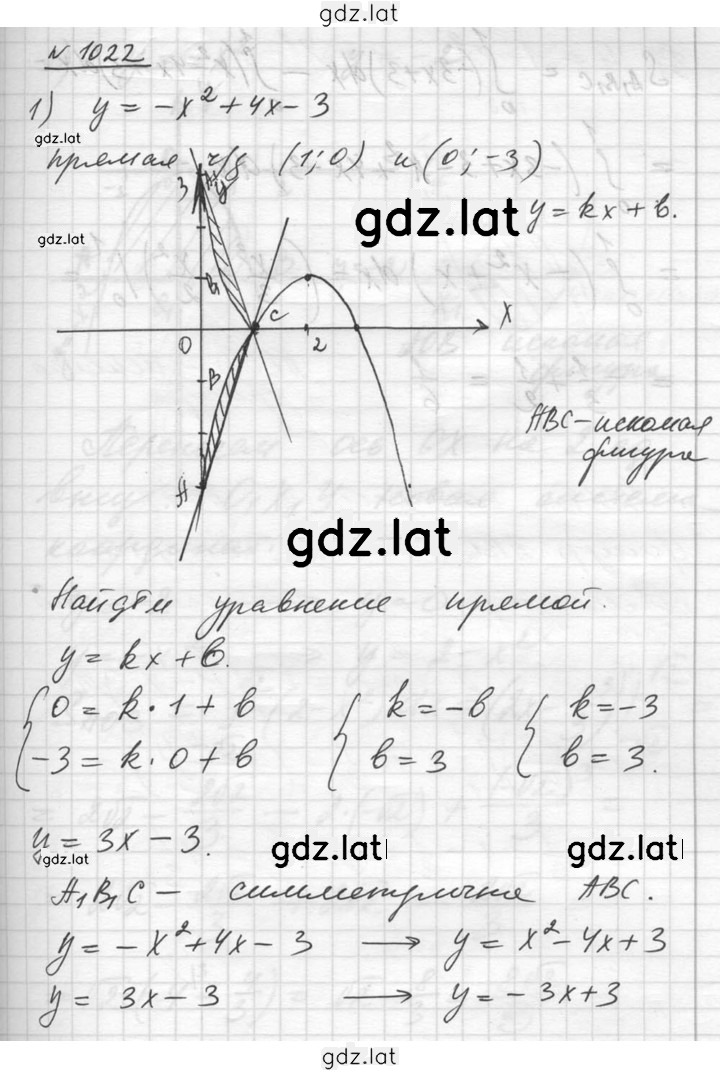 gdz.lat
N 1022
1) y = -x² + 4x - 3
gdz.lat
прямая ч/з (1; 0) и (0; -3)
3 y
gdz.lat y = kx + b.
gdz.lat
B₁
C x
0 2
B
ABC - искомая
фигура
A
gdz.lat
Найдём уравнение прямой.
y = kx + b.
{ 0 = k · 1 + b { k = -b { k = -3
{ -3 = k · 0 + b { b = 3 { b = 3.
y = 3x - 3.
gdz.lat gdz.lat gdz.lat
A₁B₁C - симметрична ABC.
y = -x² + 4x - 3 → y = x² - 4x + 3
y = 3x - 3 → y = -3x + 3
gdz.lat